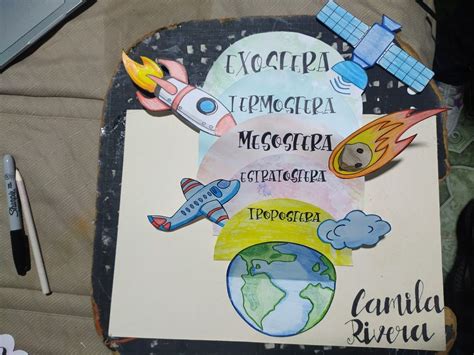 EXOSFERA
TERMOSFERA
MESOSFERA
ESTRATOSFERA
TROPOSFERA
Camila
Rivera
Sharpie